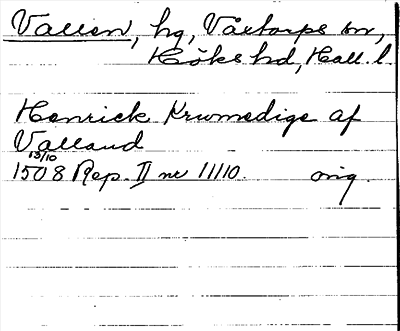 Vallen, hg, Våxtorps sn,
Höks hd, Hall. l.
Henrick Krumedige af
Valland
13/10
1508 Rep. II nr 11110. orig.